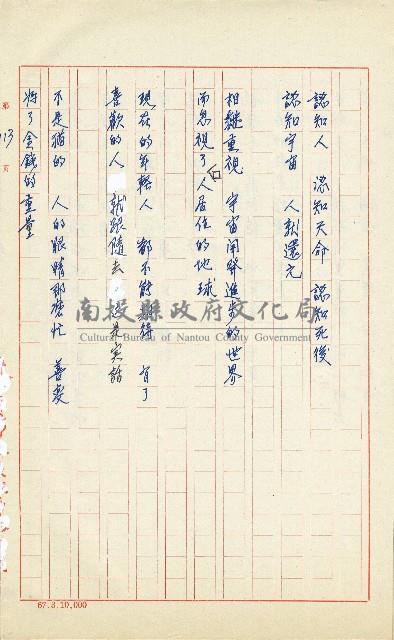 認知人 認知天命 認知死後
認知宇宙 人就還元
相繼重視 宇宙開發進步的世界
而忽視了人居住的地球
現在的年輕人 都不能 有了
喜歡的人 就跟隨去 是实話
不是猫的 人的眼睛那 忙 善变
将了金錢的重量
第 113 頁
南投縣政府文化局
Cultural Bureau of Nantou County Government
67.3.10,000